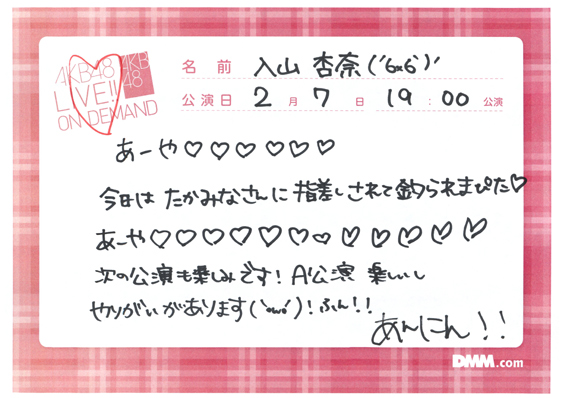 AKB48
LIVE!!
ON DEMAND
AKB
48
名前 入山 杏奈('6x6')'
公演日 2月7日 19:00公演
あーや♡♡♡♡♡♡
今日は たかみなさんに 指差しされて 釣られまぴた♡
あーや♡♡♡♡♡♡♡♡♡♡♡♡
次の公演も楽しみです!A公演 楽しいし
やりがいがあります(`•ω•´)!ふん!!
あんにん!!
DMM.com